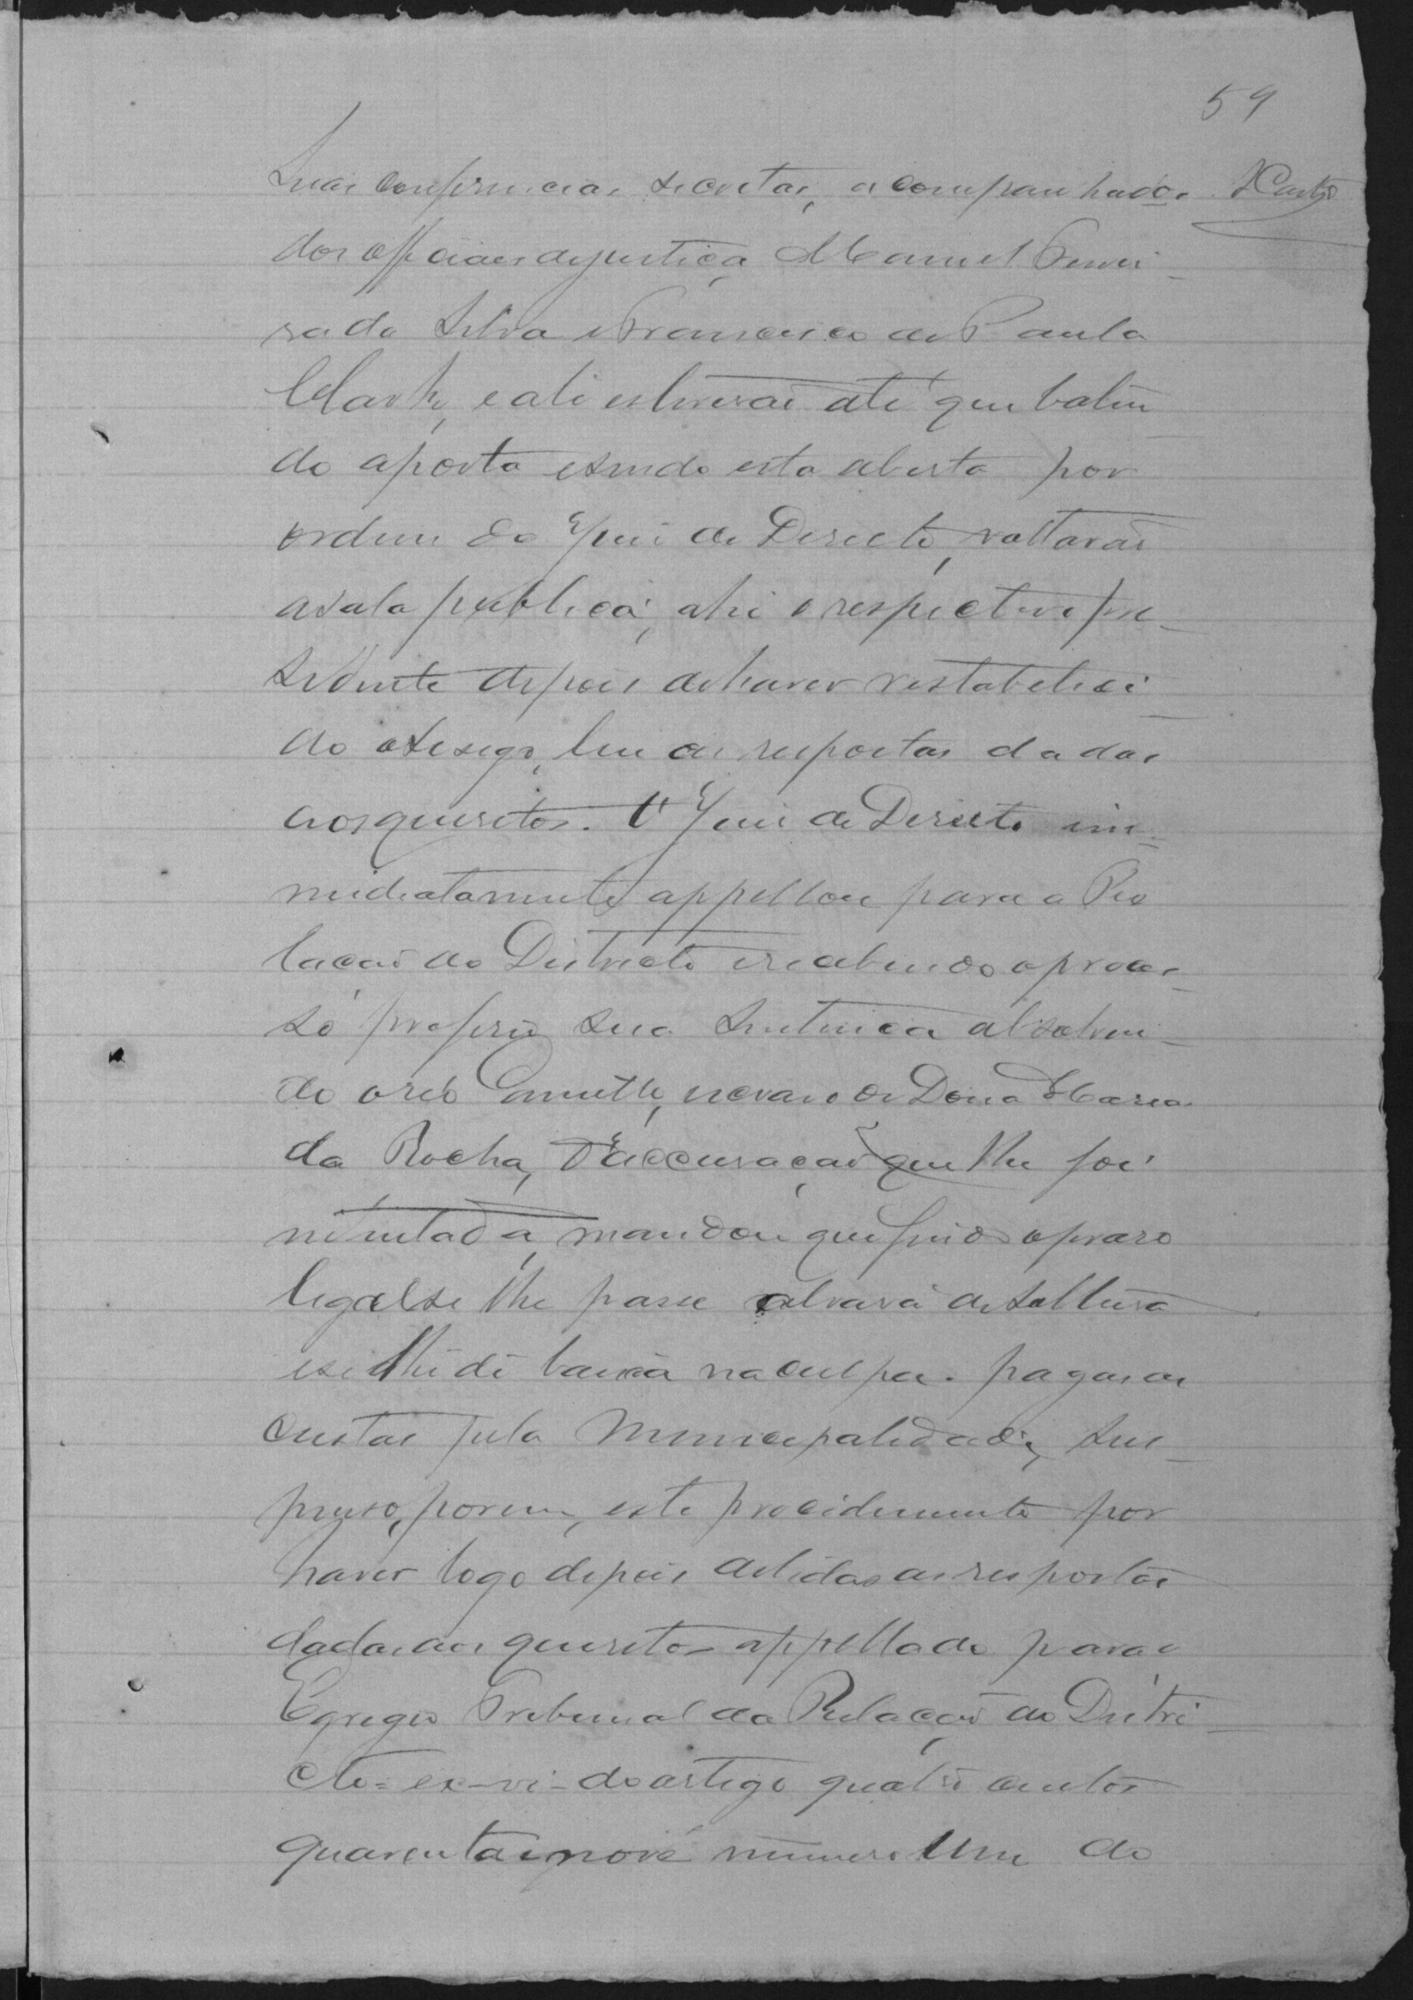 59
suas conferencias secretas, acompanhados JCastro
dos officiaes de justiça Manuel Ferrei-
ra da Silva e Francisco de Paula
e ali estiverão até que baten-
do a porta e sendo esta aberta por
ordem do Juiz de Direito, voltarão
a sala publica, ahi o respectivo pre-
sidente depois de haver restabeleci-
do o socego, leu as respostas dadas
aos quesitos. O Juiz de Direito im-
mediatamente appellou para a Re
lação do Districto e recebendo o proces-
so proferio sua sentença absolven-
do o réo escravo de Dona Maria
da Rocha, d'accusação que lhe foi
intentada, mandou que findo o praso
legal se lhe passe alvará de soltura
e se lhe dê baixa na culpa. pagas as
custas pela Municipalidade, sus-
penso, porem, este procedimento por
haver logo depois de lidas as respostas
dadas aos quesitos appellado para o
Egregio Tribunal da Relação do Distri-
cto = ex-vi - do artigo quatro centos
quarenta e nove numero Um do